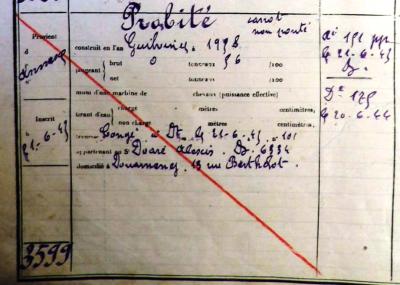 Probité canot
non ponté
Provient
d
Annexe
construit en l'an Guilvinec. 1938
jaugeant { brut 0 tonneaux 56 /100
net tonneaux /100
muni d'une machine de chevaux (puissance effective)
tirant d'eau { charge mètres centimètres,
non chargé mètres centimètres,
Congé à Dz le 21-6-45 n° 101
appartenant au Sr Doaré Alexis. Dz 6934
domicilié à Douarnenez. 13 rue Berthelot.
Inscrit
21-6-45
3599
Rl 151
le 21-6-45
Dz
D° 175
le 20-6-44